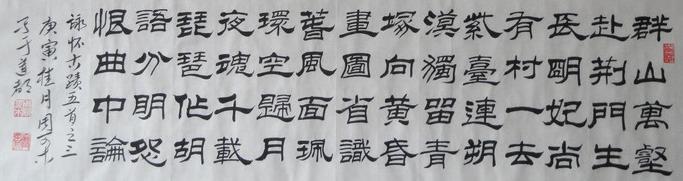 群山萬壑
赴荆門生
長明妃尚
有村一去
紫臺連朔
漠獨留青
塚向黄昏
畫圖省識
萅風面珮
環空歸月
夜魂千載
琵琶作胡
語分明怨
恨曲中論
詠怀古蹟五首之三
庚寅桂月周
于